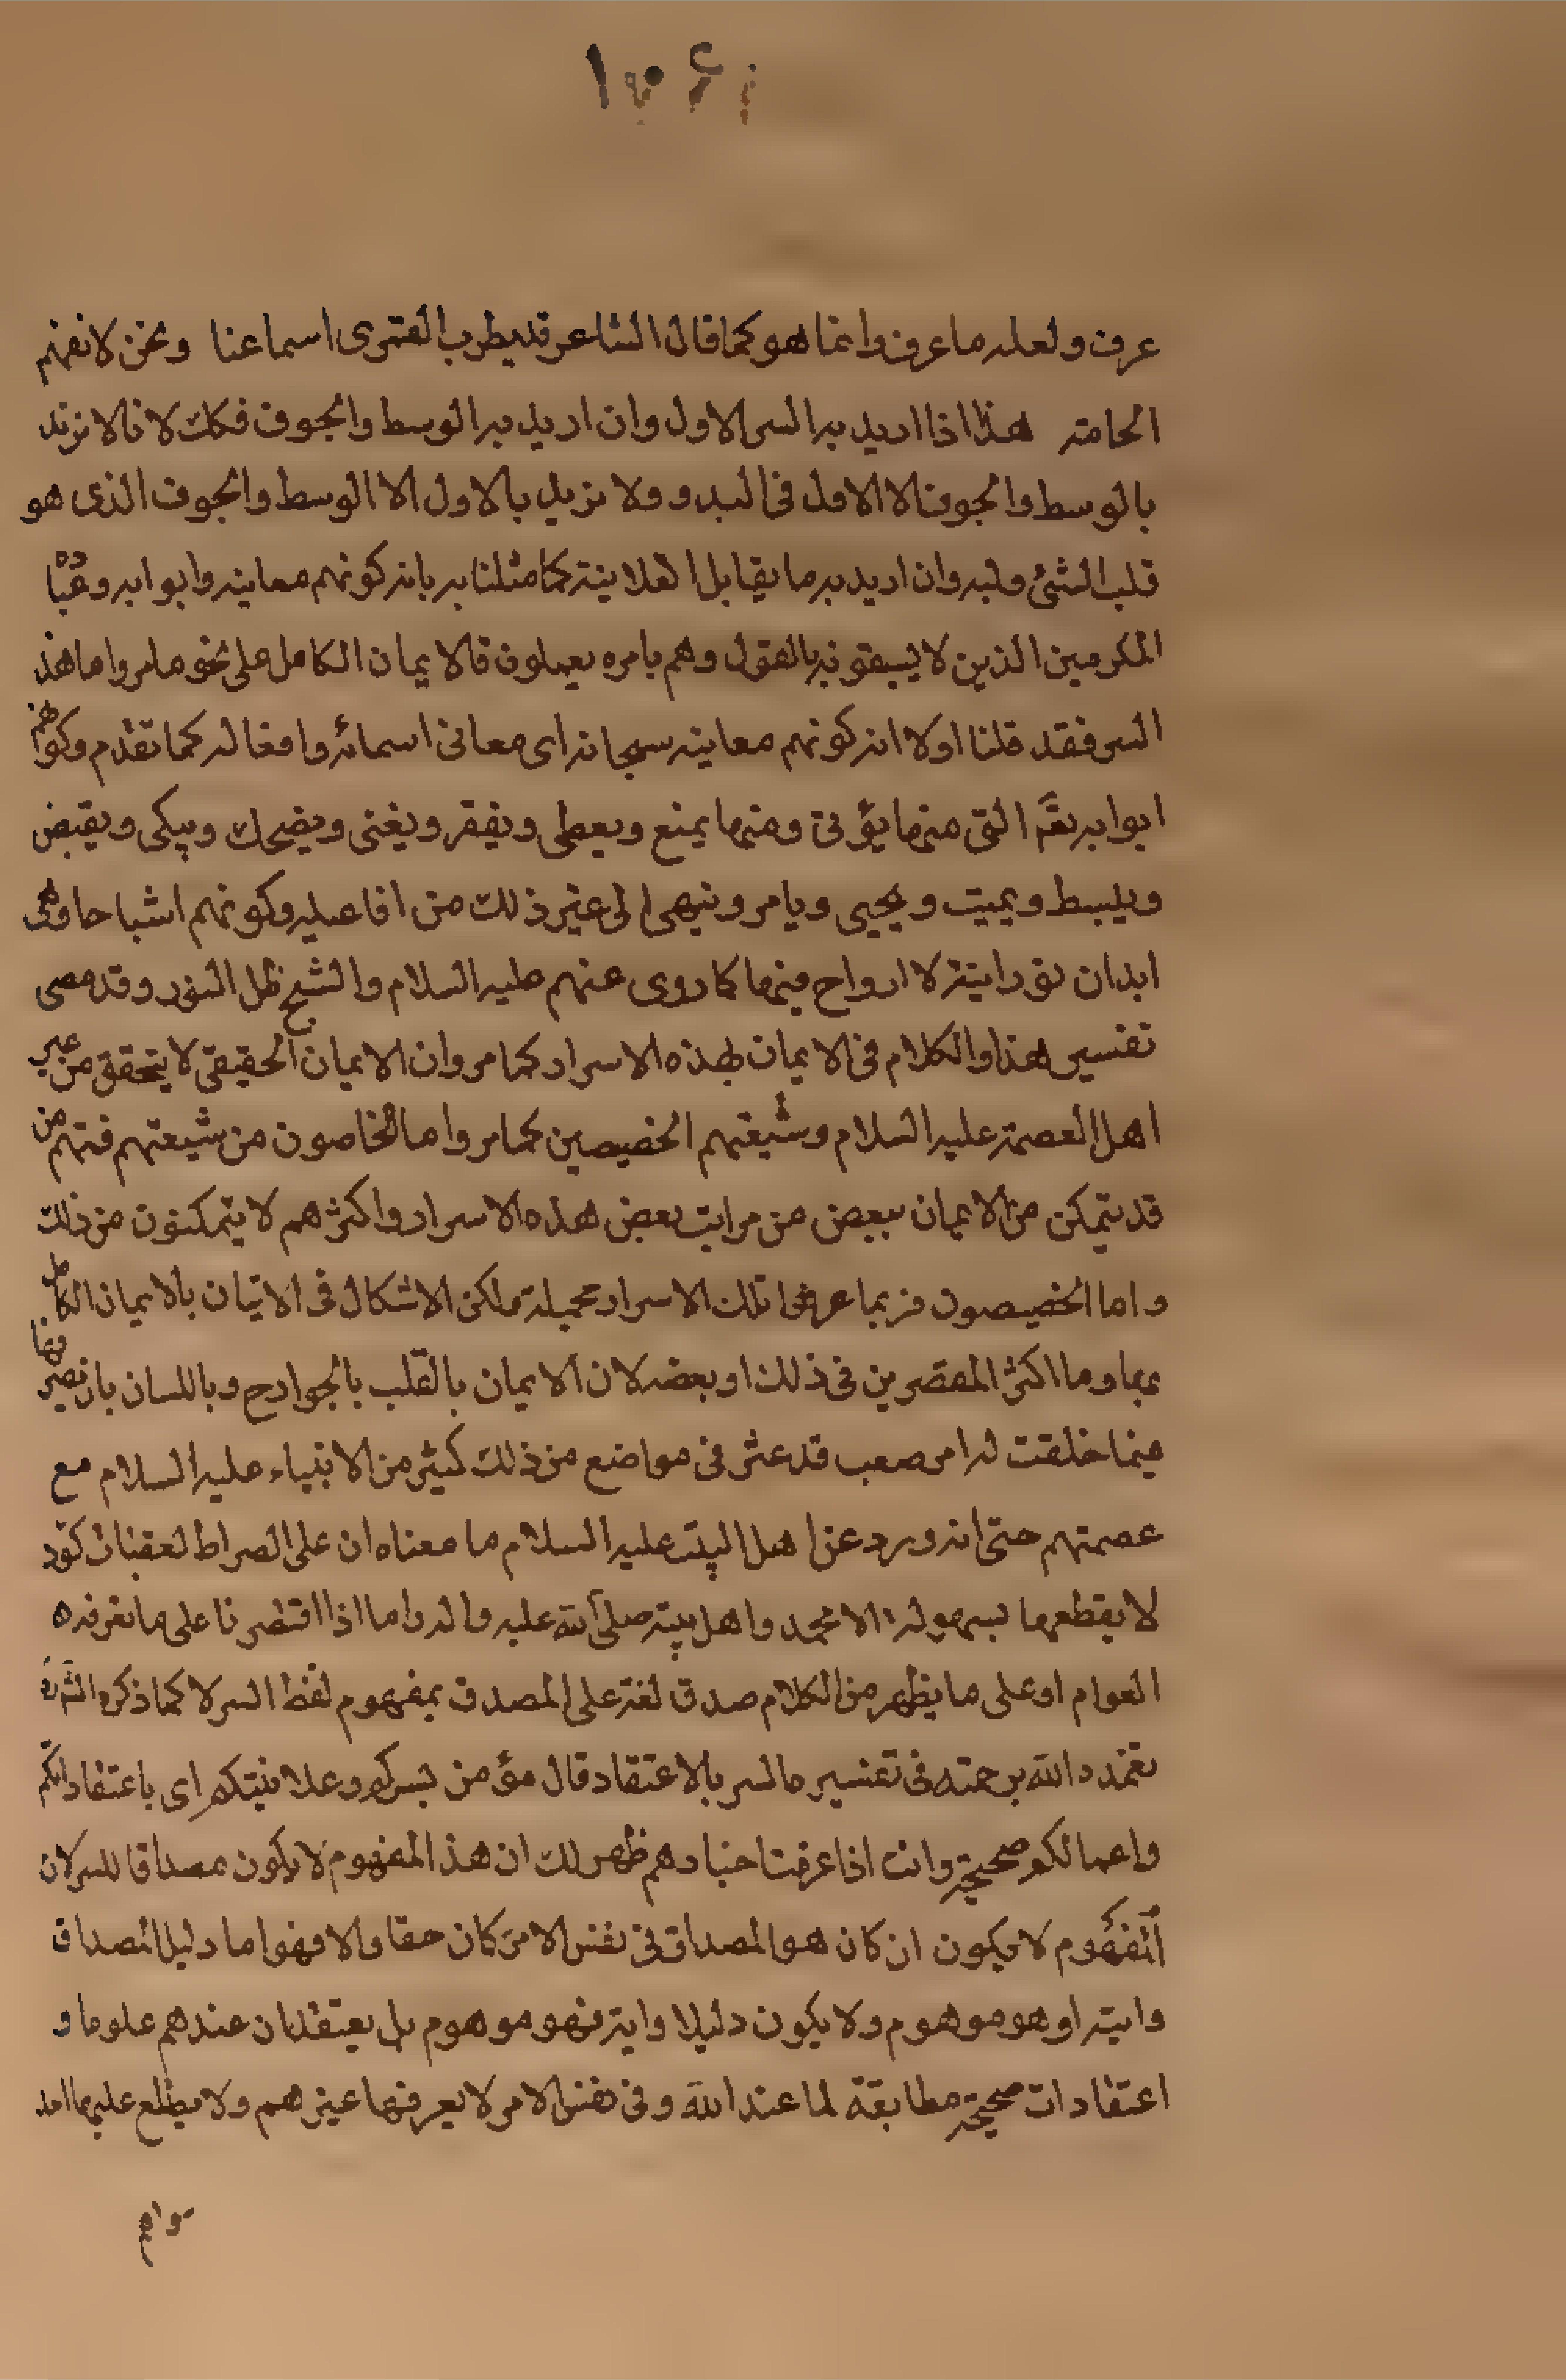 عرف ولعله ما عرف وانما هو كما قال الشاعر قد يطرب القمرى اسماعنا ونحن لا نفهم
الحانه هذا اذا اريد به السر الاول وان اريد به الوسط والجوف فكك لا نا لا نريد
بالوسط والجوف الا الاول فى البدو ولا نريد بالاول الا الوسط والجوف الذى هو
قلب الشئ ولبه وان اريد به ما يقابل العلانية كما مثلنا به بانه كونهم معانيه وابوابه وعباده
المكرمين الذين لا يسبقونه بالقول وهم بامره يعملون فالايمان الكامل على نحو ما مر واما هذ
السر فقد قلنا اولا انه كونهم معانيه سبحانه اى معانى اسمائه وافعاله كما تقدم وكونهم
ابوابه تعم التى منها يؤتى ومنها يمنع ويعطى ويفقر ويغنى ويضحك ويبكى ويقبض
ويبسط ويميت ويحيى ويامر وينهى الى غير ذلك من افاعيله وكونهم اشباحا وهى
ابدان نورانية لا ارواح فيها كما روى عنهم عليه السلام والشبح ظل النور وقد مضى
تفسير هذا والكلام فى الايمان بهذه الاسرار كما مر وان الايمان الحقيقى لا يتحقق من غير
اهل العصمة عليه السلام وشيعتهم الخصيصين كما مر واما الخاصون من شيعتهم فمنهم من
قد يتمكن من الايمان ببعض من مراتب بعض هذه الاسرار واكثرهم لا يتمكنون من ذلك
واما الخصيصون فربما عرفوا تلك الاسرار مجملة ولكن الاشكال فى الاتيان بالايمان الكامل
بها وما اكثر المقصرين فى ذلك او بعضه لان الايمان بالقلب بالجوارح وباللسان بان تصرفها
فيما خلقت له امر صعب قد عثر فى مواضع من ذلك كثير من الانبياء عليه السلام مع
عصمتهم حتى انه ورد عن اهل البيت عليه السلام ما معناه ان على الصراط لعقبات كؤد
لا يقطعها بسهوله الا محمد واهل بيته صلى الله عليه واله واما اذا اقتصرنا على ما تعرفه
العوام او على ما يظهر من الكلام صدق لغة على المصدق بمفهوم لفظ السر لا كما ذكره الش
تغمده الله برحمته فى تفسير ما السر بالاعتقاد قال مؤمن بسركم وعلانيتكم اى باعتقاداتكم
واعمالكم صحيحة وانت اذا عرفت اخبارهم ظهر لك ان هذ المفهوم لا يكون مصداقا للسر لان
المفهوم لا يكون ان كان هو المصداق فى نفس الامر كان حقا والا فهو اما دليل المصداق
وايته او هو موهوم ولا يكون دليلا واية فهو موهوم بل يعتقد ان عندهم علوما و
اعتقادات صحيحة مطابقة لما عند الله وفى نفس الامر لا يعرفها غيرهم ولا يطلع عليها احد
سواهم